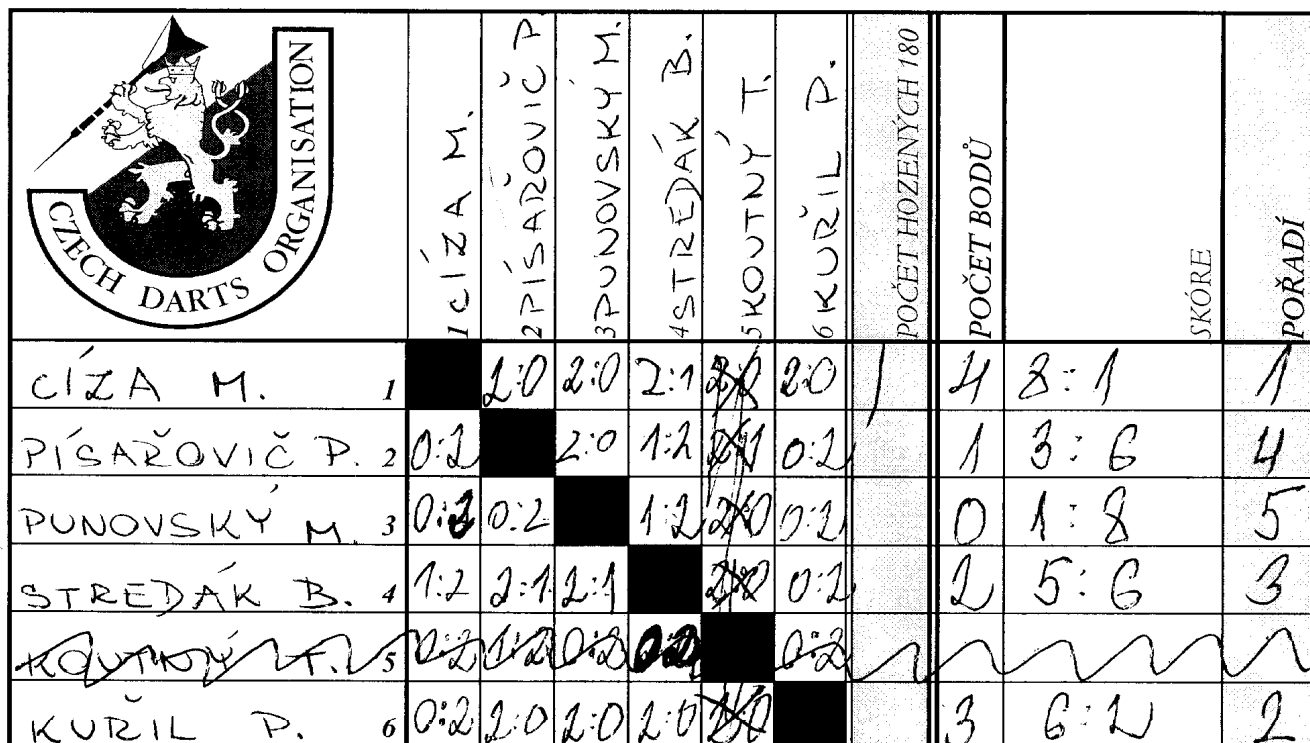 CZECH DARTS ORGANISATION
1 CÍZA M.
2 PÍSAŘOVIČ P
3 PUNOVSKÝ M.
4 STREDÁK B.
5 KOUTNÝ T.
6 KUŘIL P.
POČET HOZENÝCH 180
POČET BODŮ
SKÓRE
POŘADÍ
CÍZA M. 1 2:0 2:0 2:1 2:0 2:0 / 4 8:1 1
PÍSAŘOVIČ P. 2 0:2 2:0 1:2 2:1 0:2 1 3:6 4
PUNOVSKÝ M. 3 0:2 0:2 1:2 2:0 0:2 0 1:8 5
STREDÁK B. 4 1:2 2:1 2:1 2:0 0:2 2 5:6 3
KOUTNÝ T. 5 0:2 1:2 0:2 0:2 0:2
KUŘIL P. 6 0:2 2:0 2:0 2:0 2:0 3 6:2 2